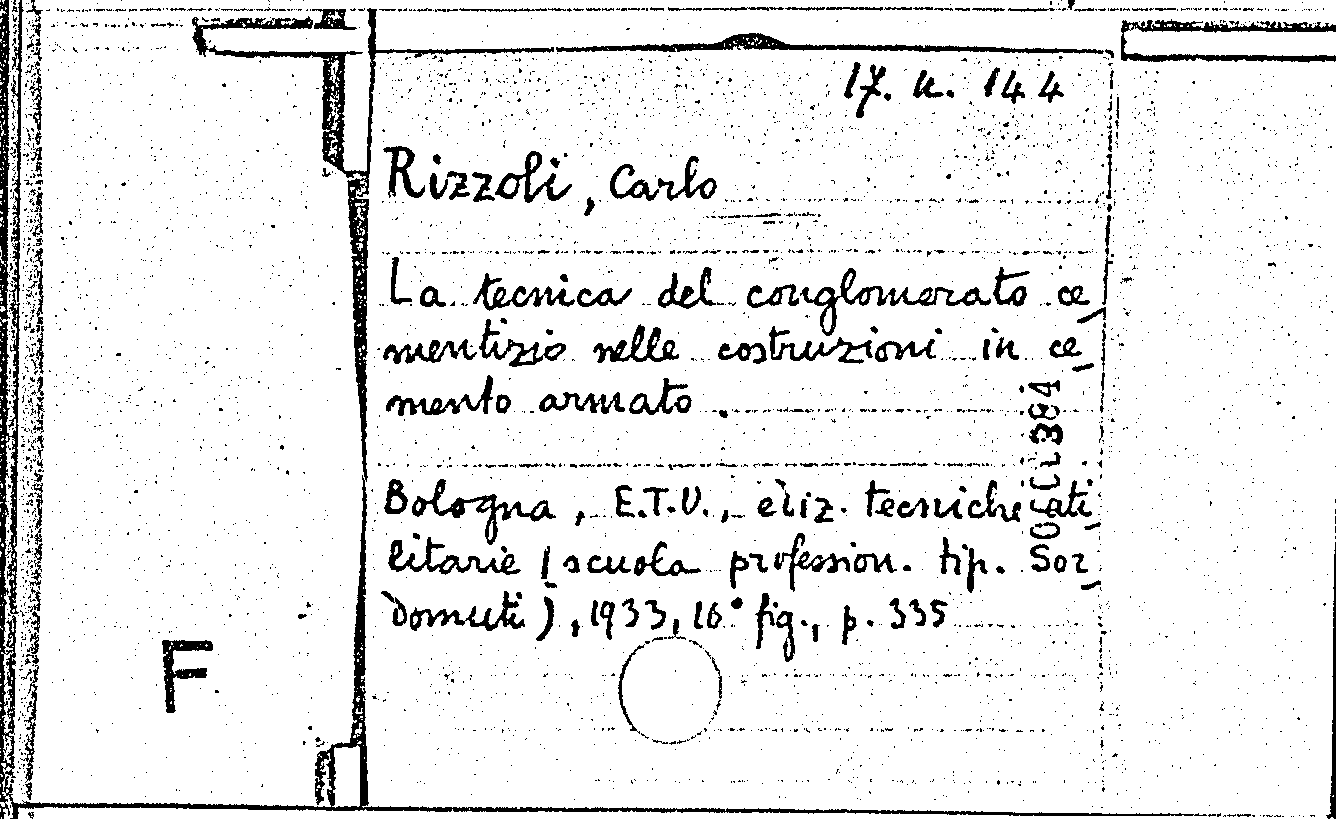 17. u. 144
Rizzoli, Carlo
La tecnica del conglomerato ce
mentizio nelle costruzioni in ce
mento armato.
Bologna, E.T.U., ediz. tecniche uti
litarie (scuola profession. tip. Sor
domuti), 1933, 16° fig., p. 335
F